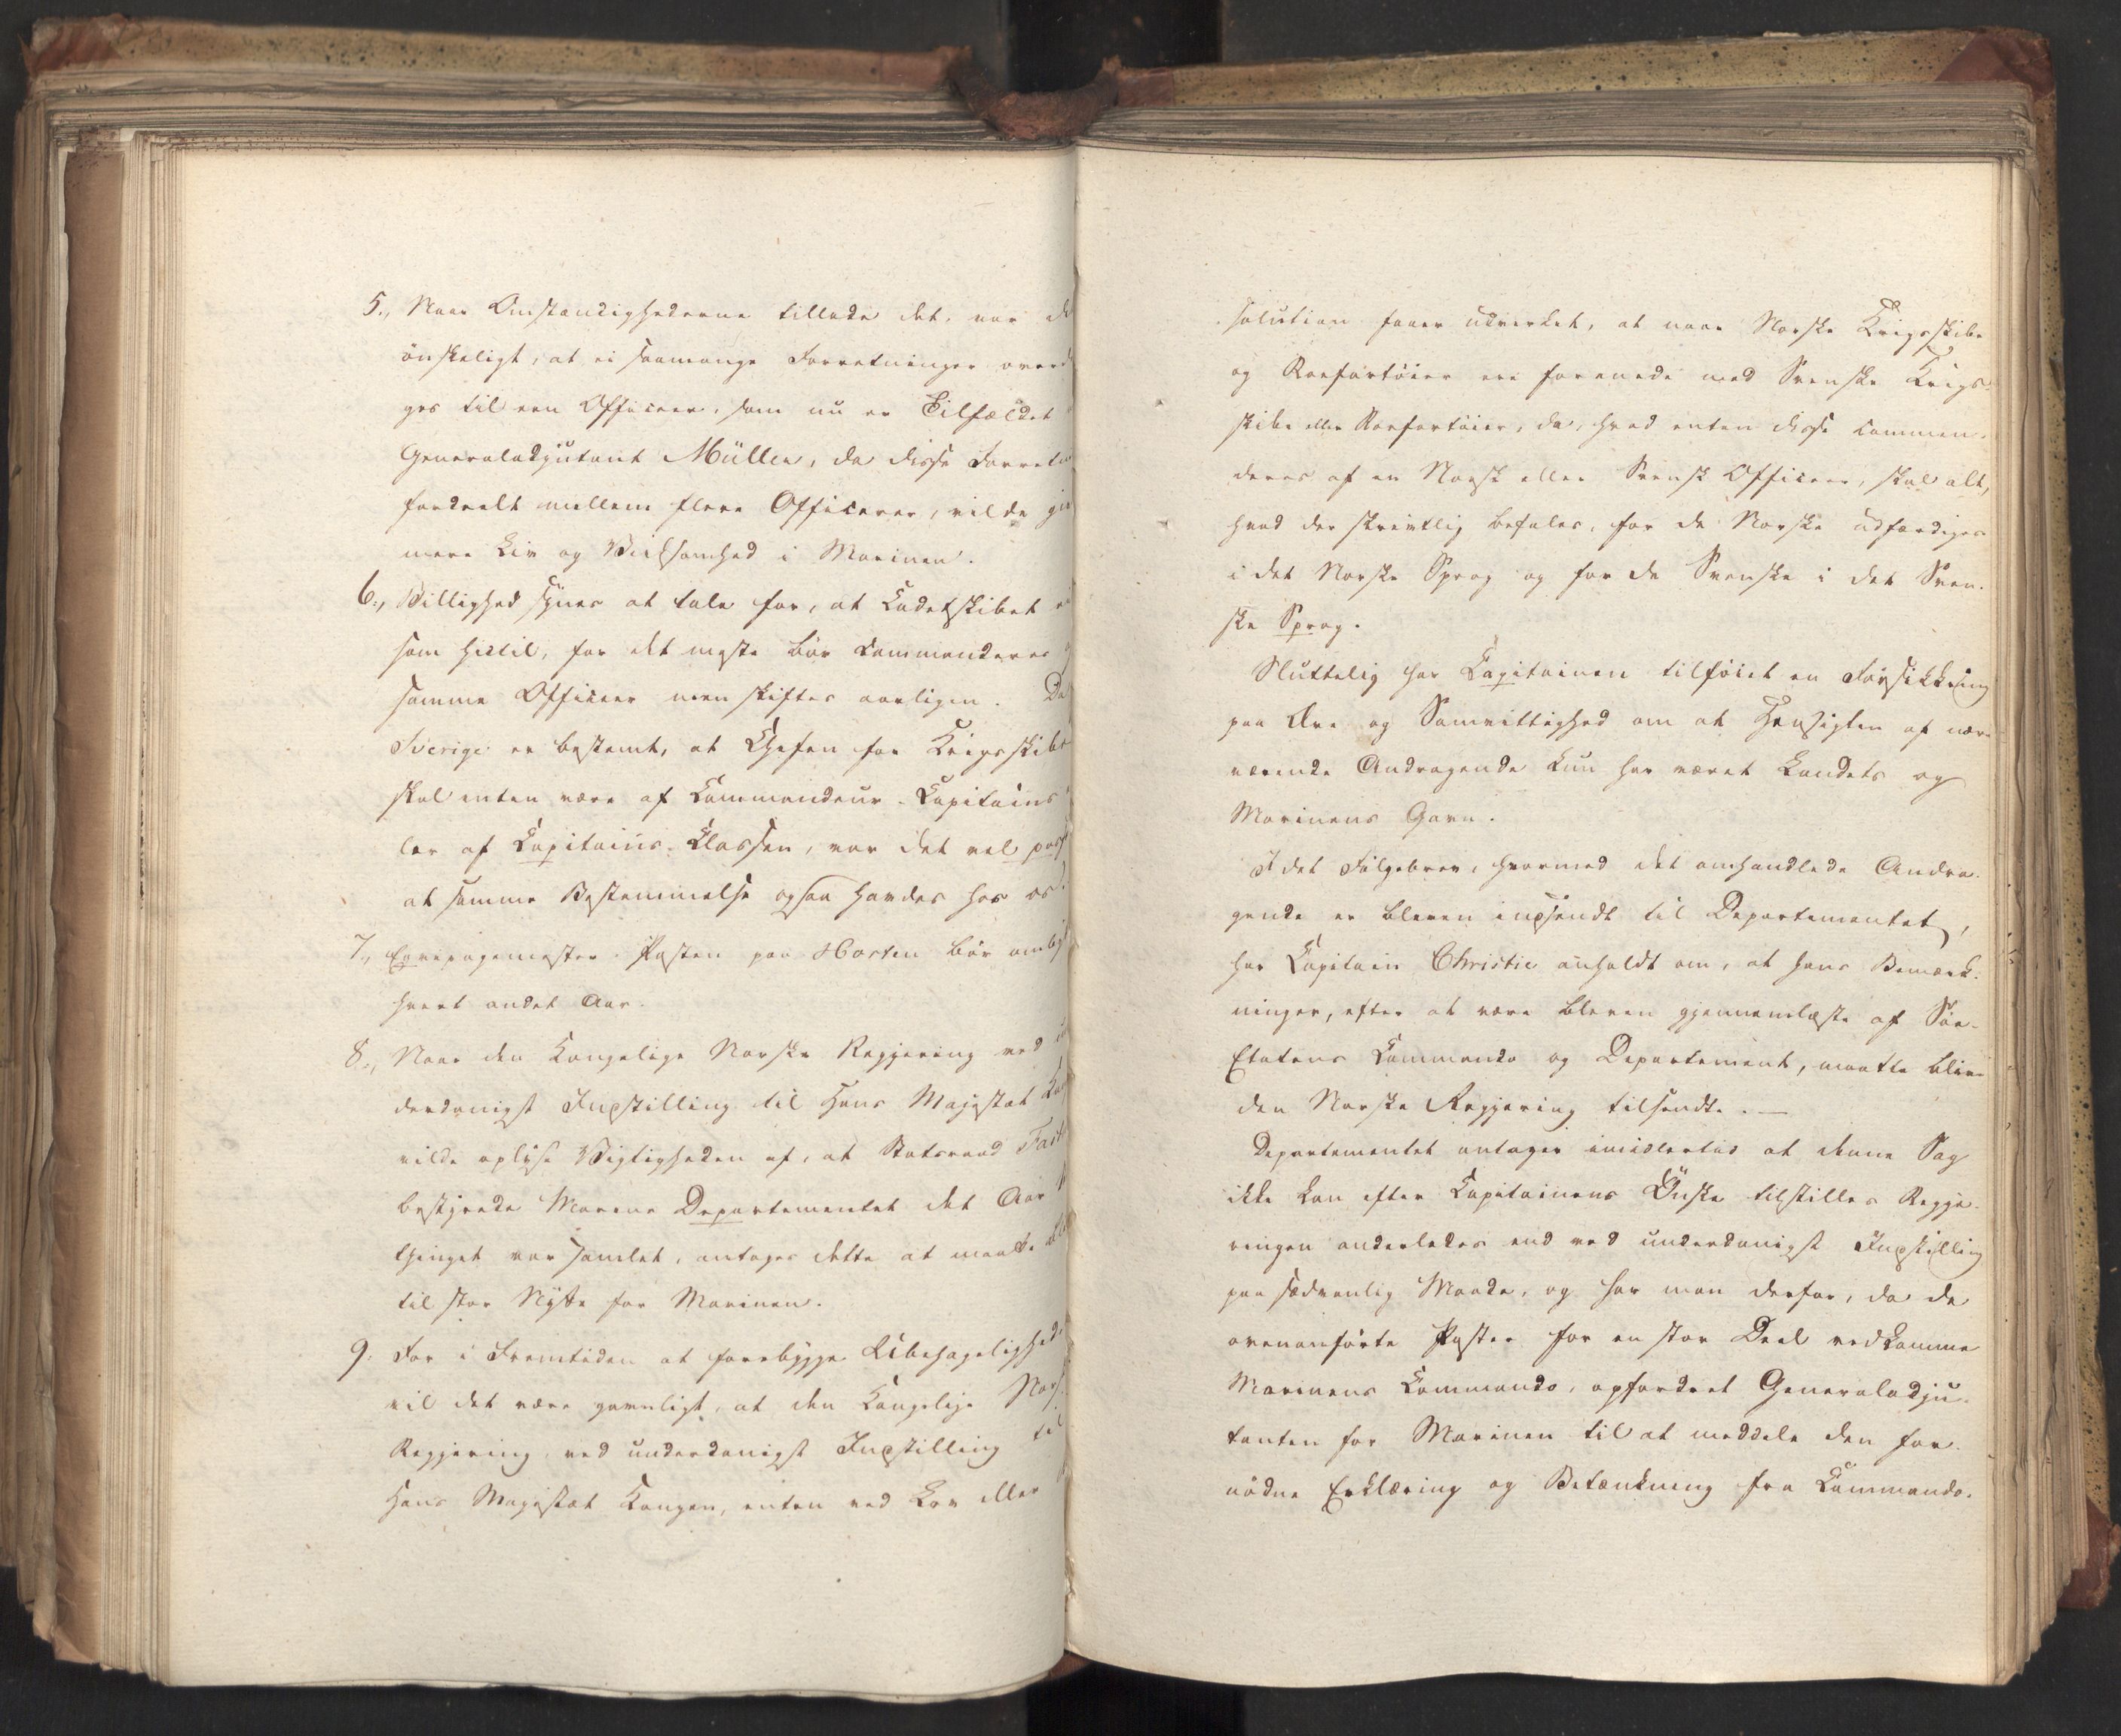 5., Naar Omstændighederne tillade det, var de
ønskeligt, at ei saamange Forretninger overd
ges til een Officeer, som nu er Tilfældet
Generaladjutant Müller, da disse Forretn
fordeelt mellem flere Officerer, vilde giv
mere Liv og Virksomhed i Marinen.
6., Billighed synes at tale for, at Cadetskibet ei
som hidtil, for det meste bør commanderes
samme Officeer men skiftes aarligen. Da
Sverige er bestemt, at Chefen for Krigsskibe
skal enten være af Commandeur-Capitains
ler af Capitains-Classen, var det vel pass
at samme Bestemmelse ogsaa havdes hos os.
7., Eqvipagemester-Posten paa Horten bør omby
hvert andet Aar.
8., Naar den Kongelige Norske Regjering ved u
derdanigst Indstilling til Hans Majestæt Kon
vilde oplyse Vigtigheden af, at Statsraad Fast
bestyrede Marine Departementet det Aar
thinget var samlet, antages dette at maatte bli
til stor Nytte for Marinen.
9. For i Fremtiden at forebygge Ubehageligheder
vil det være gavnligt, at den Kongelige Nors
Regjering, ved underdanigst Indstilling til
Hans Majestæt Kongen, enten ved Lov eller
solution faaer udvirket, at naar Norske Krigsskibe
og Roefartøier ere forenede med Svenske Krigs
skibe eller Roefartøier, da, hvad enten disse comman-
deres af en Norsk eller Svensk Officeer, skal alt,
hvad der skrivtlig befales, for de Norske udfærdiges
i det Norske Sprog og for de Svenske i det Sven-
ske Sprog.
Sluttelig har Capitainen tilføiet en Forsikkring
paa Ære og Samvittighed om at Hensigten af nær-
værende Andragende kun har været Landets og
Marinens Gavn.
I det Følgebrev, hvormed det omhandlede Andra-
gende er bleven indsendt til Departementet,
har Capitain Christie anholdt om, at hans Bemærk-
ninger, efter at være bleven gjennemlæste af Søe-
Etatens Commando og Departement, maatte blive
den Norske Regjering tilsendte. —
Departementet antager imidlertid at denne Sag
ikke kan efter Capitainens Ønske tilstilles Regje-
ringen anderledes end ved underdanigst Indstilling
paa sædvanlig Maade, og har man derfor, da de
ovenanførte Poster for en stor Deel vedkomme
Marinens Commando, opfordret Generaladju-
tanten for Marinen til at meddele den for-
nødne Erklæring og Betænkning fra Commando-